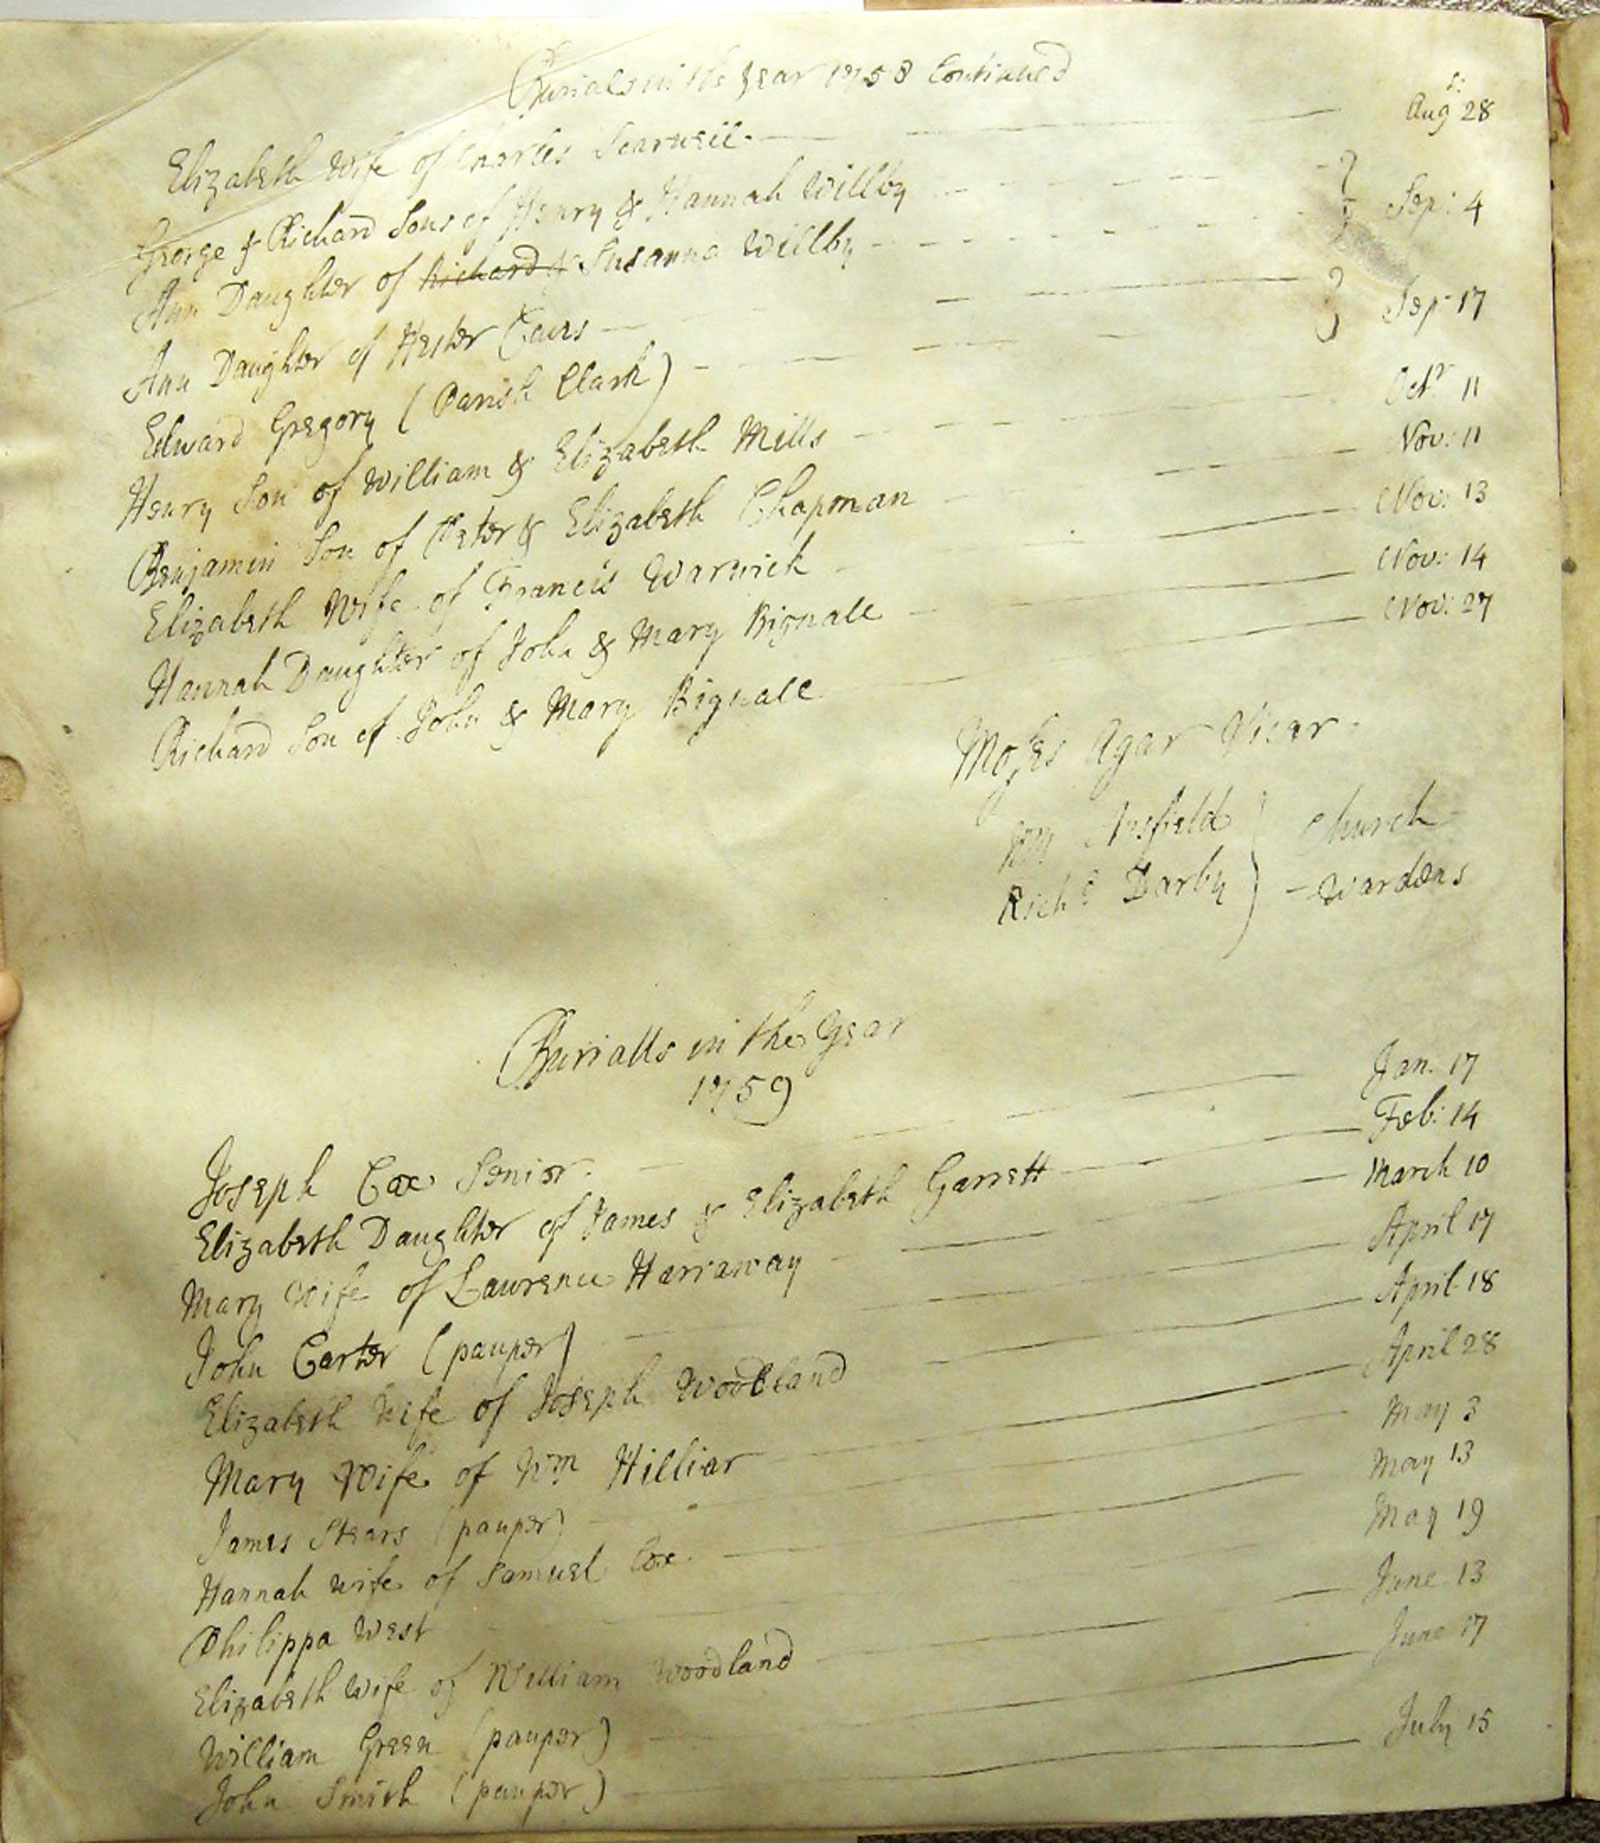 Burials in the year 1758 Continued
Elizabeth Wife of Charles Scarwell Augst: 28
George & Richard Sons of Henry & Hannah Willby
Ann Daughter of Richard & Susanna Willby Sep: 4
Ann Daughter of Hester
Edward Gregory (Parish Clark) Sep: 17
Henry Son of William & Elizabeth Mills Octr 11
Benjamin Son of Peter & Elizabeth Chapman Nov: 11
Elizabeth Wife of Francis Warwick Nov: 13
Hannah Daughter of John & Mary Bignall Nov: 14
Richard Son of John & Mary Bignall Nov: 27
Moses Agar Vicar
Wm Church
Richd Darby - Wardens
Burialls in the Year
1759
Joseph Cox Senior Jan. 17
Elizabeth Daughter of James & Elizabeth Garrett Feb: 14
Mary Wife of Lawrence Harraway March 10
John Carter (pauper) April 17
Elizabeth Wife of Joseph Woodland April 18
Mary Wife of Wm Hilliar April 28
James Stears (pauper) May 3
Hannah wife of Samuel Cox May 13
Philippa West May 19
Elizabeth Wife of William Woodland June 13
William Green (pauper) June 17
John Smith (pauper) July 15